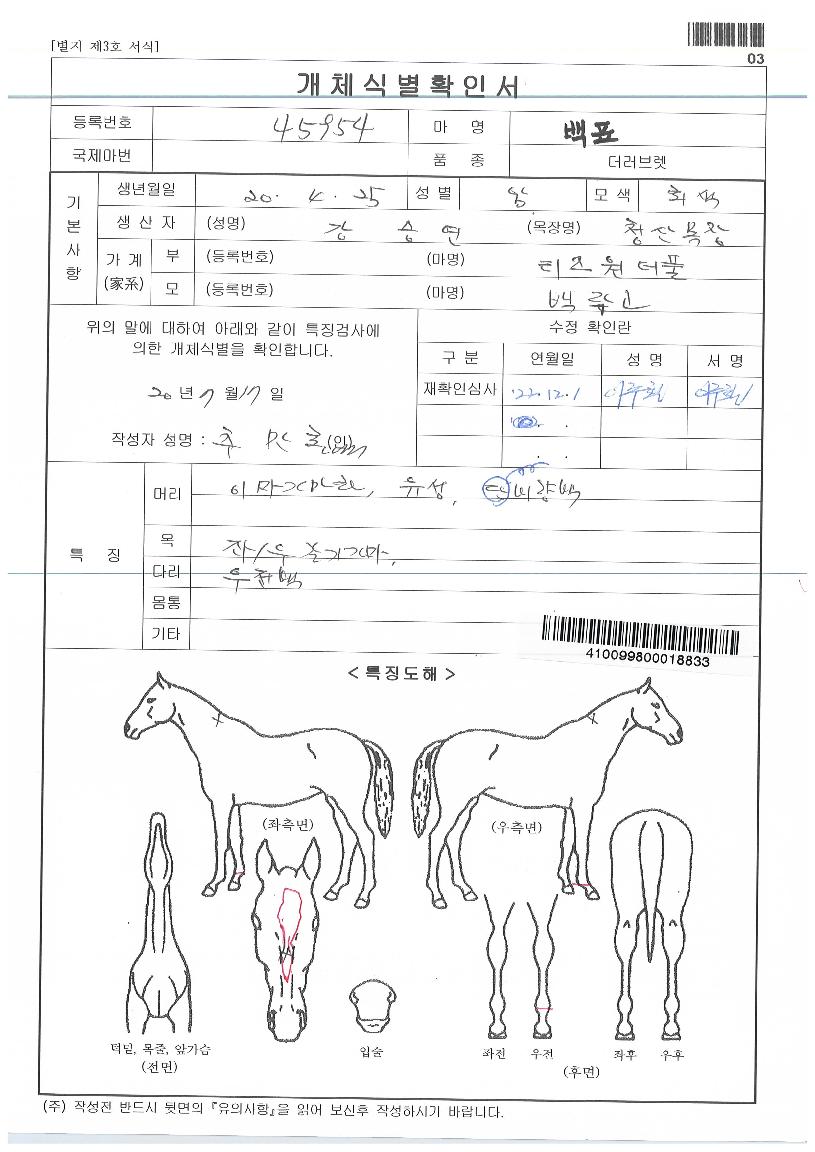 [별지 제3호 서식]
03
개체식별확인서
등록번호 45954 마 명 백표
국제마번 품 종 더러브렛
기본사항
생년월일 20. 4. 25 성 별 암 모 색 회색
생 산 자 (성명) 강 승 연 (목장명) 청산목장
가 계 (家系) 부 (등록번호) (마명) 티즈원더풀
모 (등록번호) (마명)
위의 말에 대하여 아래와 같이 특징검사에
의한 개체식별을 확인합니다.
20 년 7 월 17 일
작성자 성명 : (인)
수정 확인란
구 분 연월일 성 명 서 명
재확인심사 '22.12.1
특 징
머리 이마가마 유성,
목 좌/우 가마,
다리 우전백
몸통
기타
410099800018833
< 특징도해 >
(좌측면) (우측면)
턱밑, 목줄, 앞가슴
(전면)
입술
좌전 우전 좌후 우후
(후면)
(주) 작성전 반드시 뒷면의 『유의사항』을 읽어 보신후 작성하시기 바랍니다.